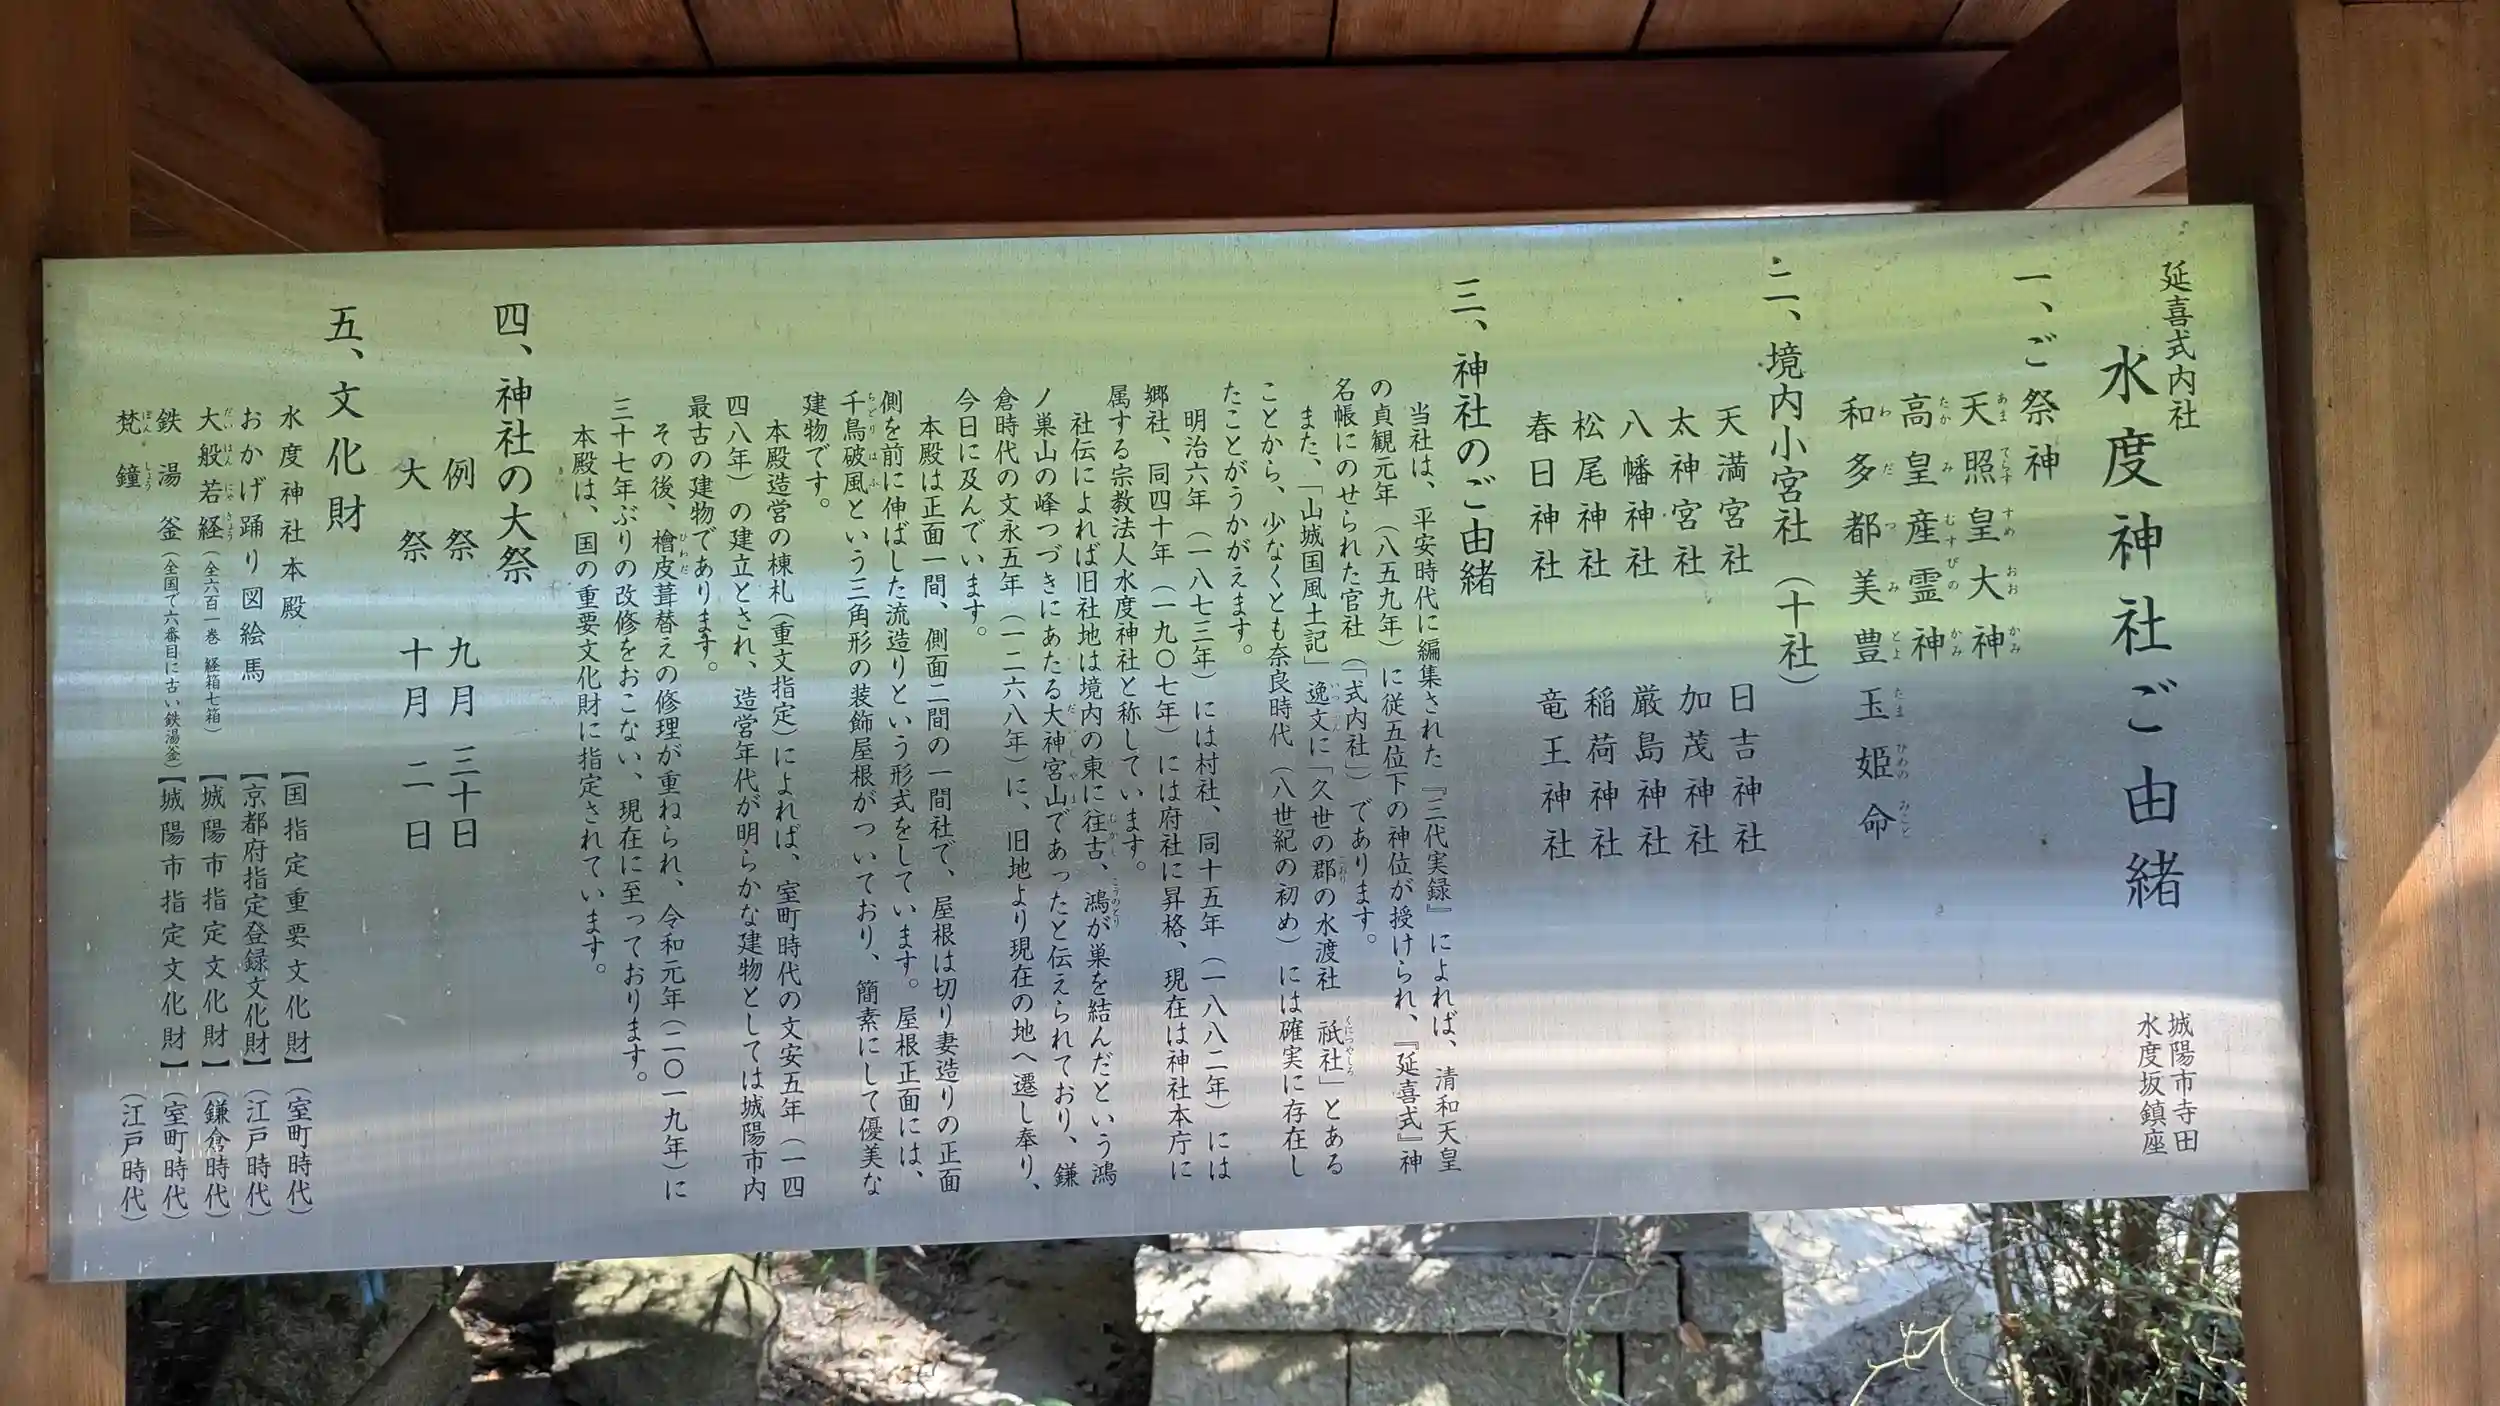 延喜式内社
水度神社ご由緒
城陽市寺田
水度坂鎮座
一、ご祭神
天照皇大神
あまてらすすめおおかみ
高皇産霊神
たかみむすびのかみ
和多都美豊玉姫命
わだつみとよたまひめのみこと
二、境内小宮社（十社）
天満宮社 日吉神社
太神宮社 加茂神社
八幡神社 厳島神社
松尾神社 稲荷神社
春日神社 竜王神社
三、神社のご由緒
当社は、平安時代に編集された『三代実録』によれば、清和天皇
の貞観元年（八五九年）に従五位下の神位が授けられ、『延喜式』神
名帳にのせられた官社（「式内社」）であります。
また、「山城国風土記」逸文に「久世の郡の水渡社 祇社」とある
いつぶん こおり くにつやしろ
ことから、少なくとも奈良時代（八世紀の初め）には確実に存在し
たことがうかがえます。
明治六年（一八七三年）には村社、同十五年（一八八二年）には
郷社、同四十年（一九〇七年）には府社に昇格、現在は神社本庁に
属する宗教法人水度神社と称しています。
社伝によれば旧社地は境内の東に往古、鴻が巣を結んだという鴻
むかし こうのとり
ノ巣山の峰つづきにあたる大神宮山であったと伝えられており、鎌
倉時代の文永五年（一二六八年）に、旧地より現在の地へ遷し奉り、
今日に及んでいます。
本殿は正面一間、側面二間の一間社で、屋根は切り妻造りの正面
側を前に伸ばした流造りという形式をしています。屋根正面には、
千鳥破風という三角形の装飾屋根がついており、簡素にして優美な
ちどりはふ
建物です。
本殿造営の棟札（重文指定）によれば、室町時代の文安五年（一四
四八年）の建立とされ、造営年代が明らかな建物としては城陽市内
最古の建物であります。
その後、檜皮葺替えの修理が重ねられ、令和元年（二〇一九年）に
ひわだ
三十七年ぶりの改修をおこない、現在に至っております。
本殿は、国の重要文化財に指定されています。
四、神社の大祭
例祭 九月三十日
大祭 十月二日
五、文化財
水度神社本殿 【国指定重要文化財】（室町時代）
おかげ踊り図絵馬 【京都府指定登録文化財】（江戸時代）
大般若経（全六百一巻 経箱七箱） 【城陽市指定文化財】（鎌倉時代）
だいはんにゃきょう
鉄湯釜（全国で六番目に古い鉄湯釜） 【城陽市指定文化財】（室町時代）
梵鐘 （江戸時代）
ぼんしょう